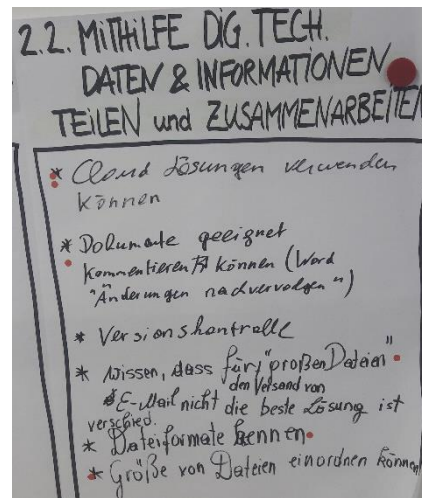 2.2. MITHILFE DIG. TECH.
DATEN & INFORMATIONEN
TEILEN und ZUSAMMENARBEITEN
* Cloud Lösungen verwenden
können
* Dokumente geeignet
kommentieren können (Word
"Änderungen nachvervolgen")
* Versionskontrolle
* wissen, dass für "großen Dateien"
den Versand von
E-Mail nicht die beste Lösung ist
verschied.
* Dateiformate kennen
* Größe von Dateien einordnen können